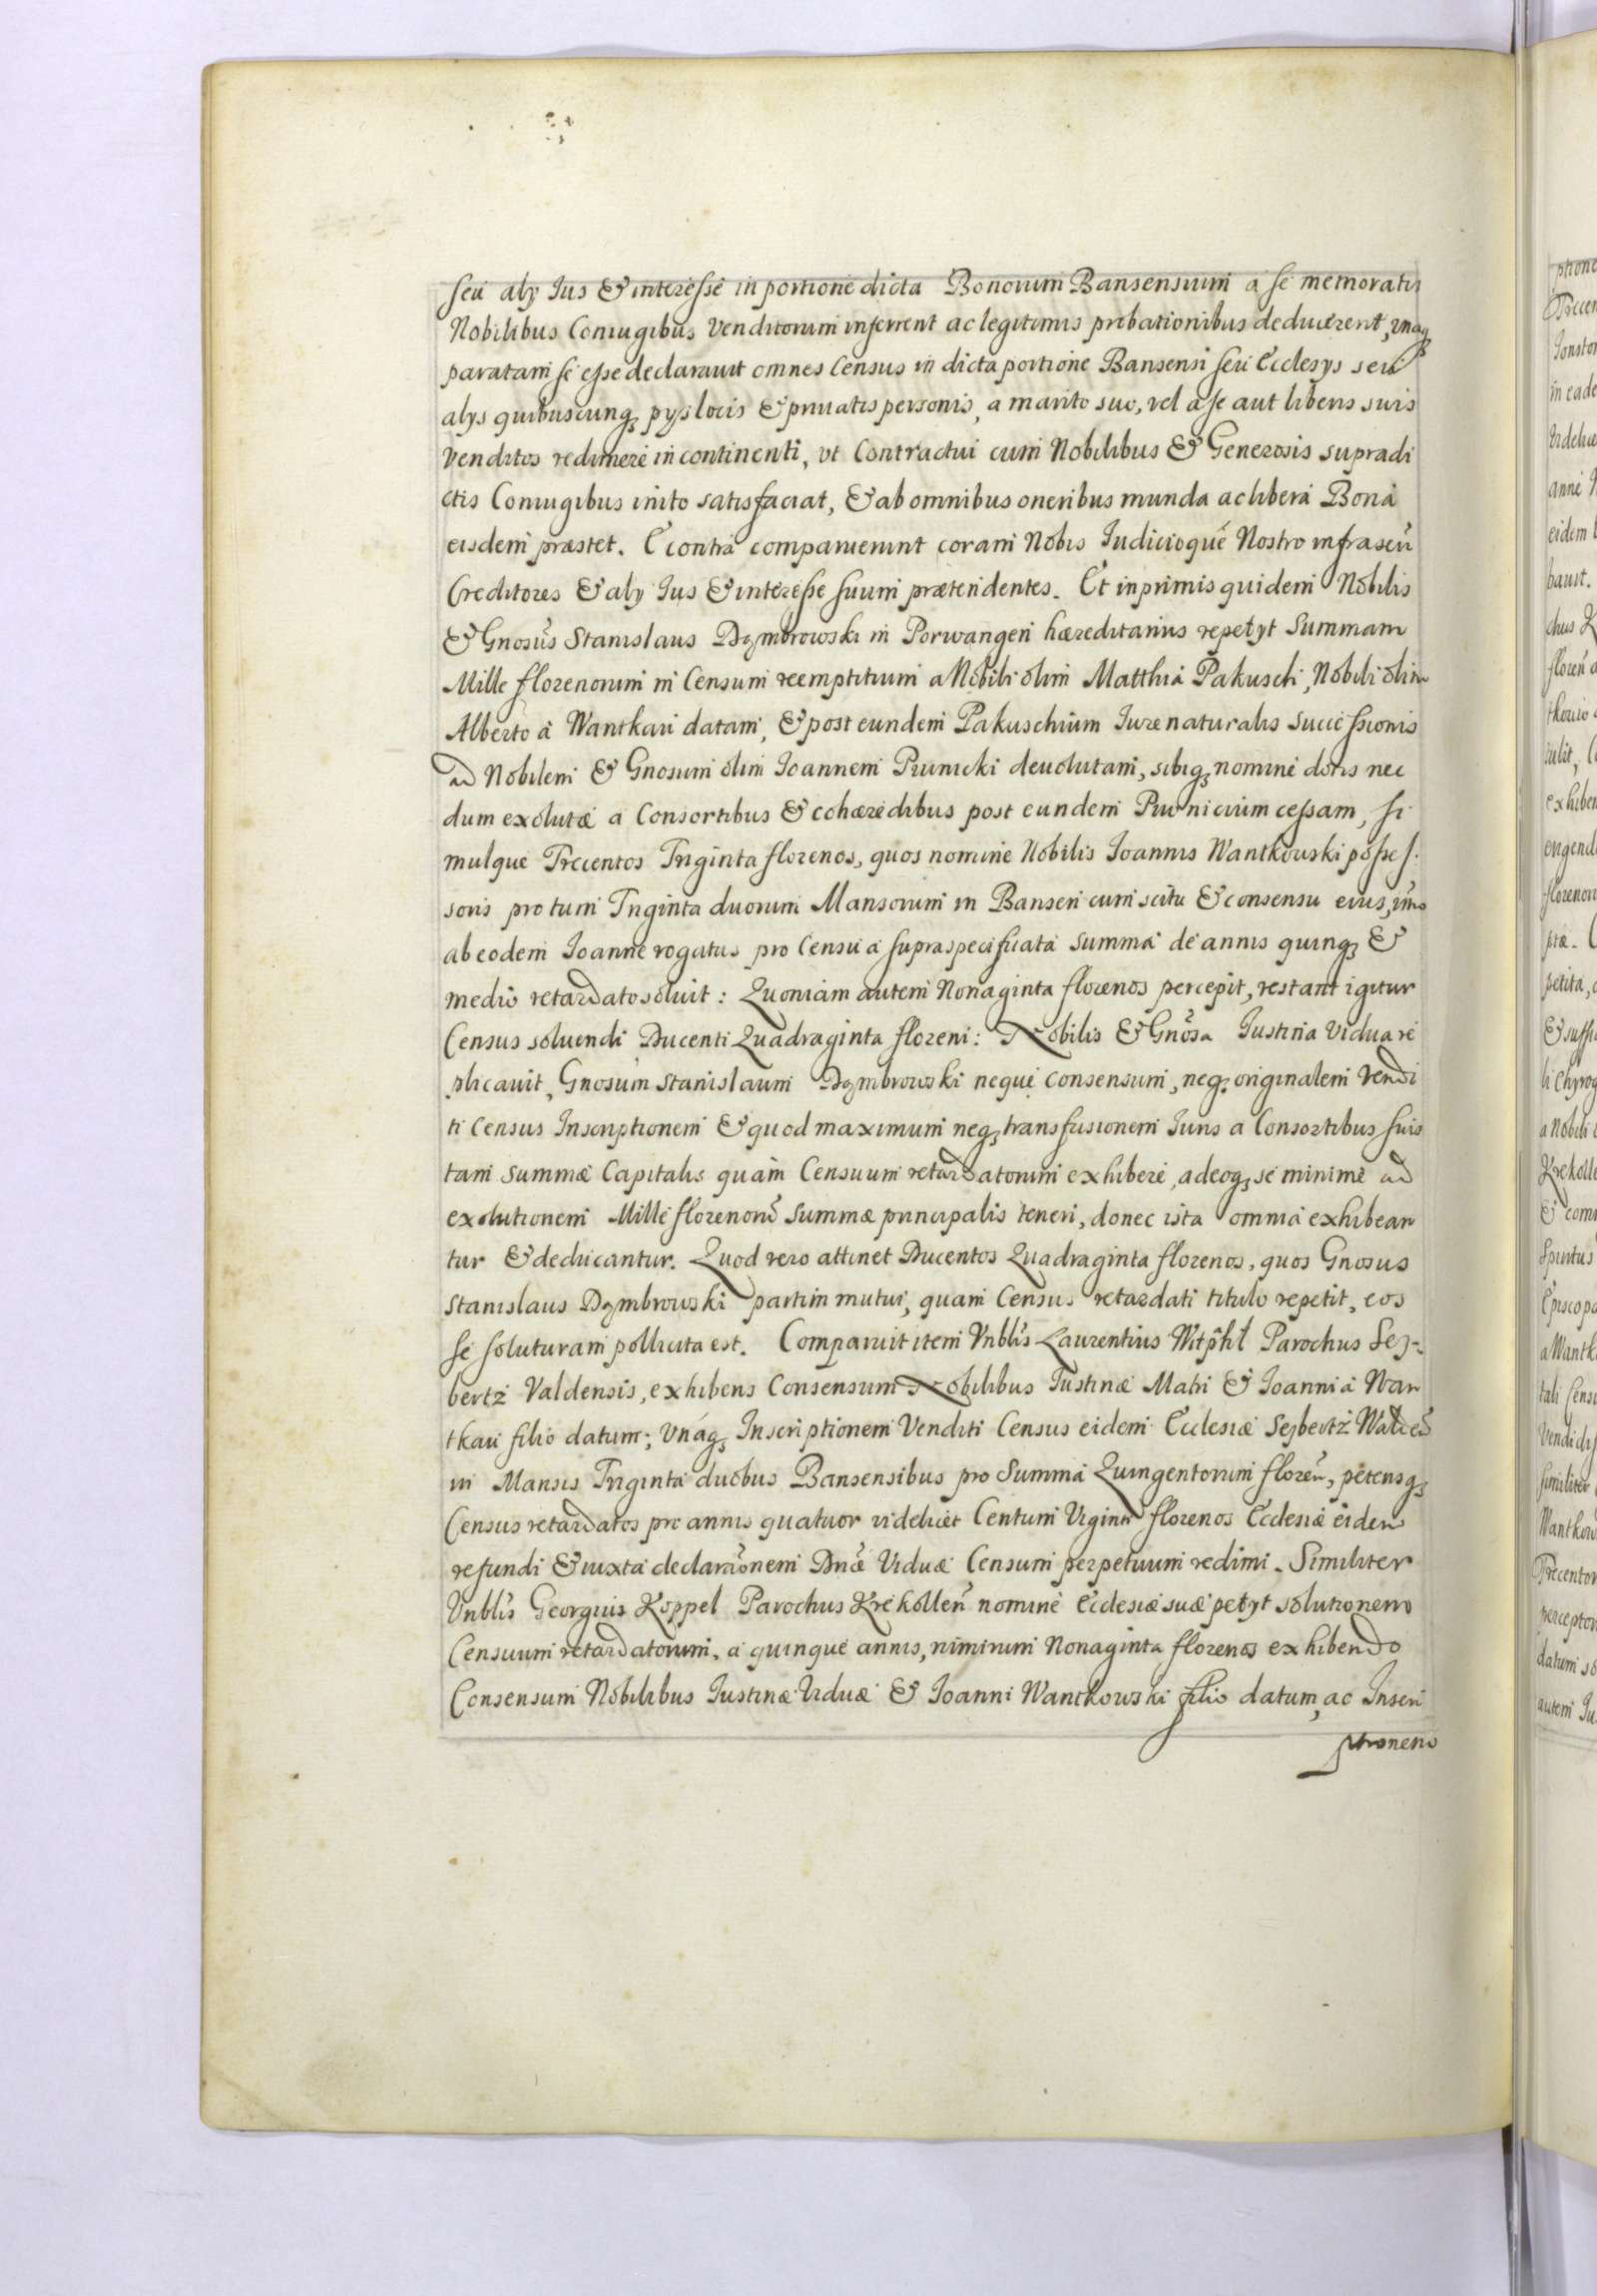 seu alÿ Jus & interesse in portione dicta Bonorum Bansensium a se memoratis
Nobilibus Coniugibus Venditorum inferrent ac legitimis probationibus deducerent, vnaqꝫ
paratam se esse declarauit omnes Census in dicta portione Bansensi seu Ecclesÿs seu
alÿs quibuscunqꝫ pÿs locis & priuatis personis, a marito suo, vel a se aut liberis suis
venditos redimere in continenti, vt Contractui cum Nobilibus & Generosis supradi
ctis Coniugibus inito satisfaciat, & ab omnibus oneribus munda ac libera Bona
eisdem præstet. E contra comparuerunt coram Nobis Judicioque Nostro infrascri
Creditores & alÿ Jus & interesse suum prætendentes. Et inprimis quidem Nobilis
& Gnosus Stanislaus Dzmbrowski in Porwangen hæreditarius repetÿt Summam
Mille florenorum in Censum reemptitium a Nobili olim Matthia Pakusch, Nobili olim
Alberto a Wantkau datam, & post eundem Pakuschium Jure naturalis successionis
ad Nobilem & Gnosum olim Joannem Piunicki deuolutam, sibiqꝫ nomine dotis nec
dum exolutæ a Consortibus & cohæredibus post eundem Piunicium cessam, si
mulque Trecentos Triginta florenos, quos nomine Nobilis Joannis Wantkowski posses
soris pro tum Triginta duorum Mansorum in Bansen cum scitu & consensu eius, imo
ab eodem Joanne rogatus pro Censu a supraspecificata summa de annis quinqꝫ &
medio retardato soluit: Quoniam autem Nonaginta florenos percepit, restant igitur
Census soluendi Ducenti Quadraginta floreni: Nobilis & Gnosa Justina Vidua re
plicauit, Gnosum Stanislaum Dzmbrowski neque consensum, neqꝫ originalem Vendi
ti Census Inscriptionem & quod maximum neqꝫ transfusionem Juris a Consortibus suis
tam summæ Capitalis quam Censuum retardatorum exhibere, adeoqꝫ se minime ad
exolutionem Mille florenorũ Summæ principalis teneri, donec ista omnia exhibean
tur & deducantur. Quod vero attinet Ducentos Quadraginta florenos, quos Gnosus
Stanislaus Dzmbrowski partim mutui, quam Census retardati titulo repetit, eos
se soluturam pollicita est. Comparuit item Vnblis Laurentius Witpfhil Parochus Seÿ-
bertz Valdensis, exhibens Consensum Nobilibus Justinæ Matri & Joanni a Wan
tkau filio datum; Vnaqꝫ Inscriptionem Venditi Census eidem Ecclesiæ Seÿbertz Walden̄
in Mansis Triginta duobus Bansensibus pro Summa Quingentorum floren̄, petensqꝫ
Census retardatos pro annis quatuor videlicet Centum Viginti florenos Ecclesiæ eidem
refundi & iuxta declaraōnem Dnæ Viduæ Censum perpetuum redimi. Similiter
Vnblis Georgius Koppel Parochus Krekollen̄ nomine Ecclesiæ suæ petÿt solutionem
Censuum retardatorum, a quinque annis, nimirum Nonaginta florenos exhibendo
Consensum Nobilibus Justinæ Viduæ & Joanni Wantkowski filio datum, ac Inscri
ptionem